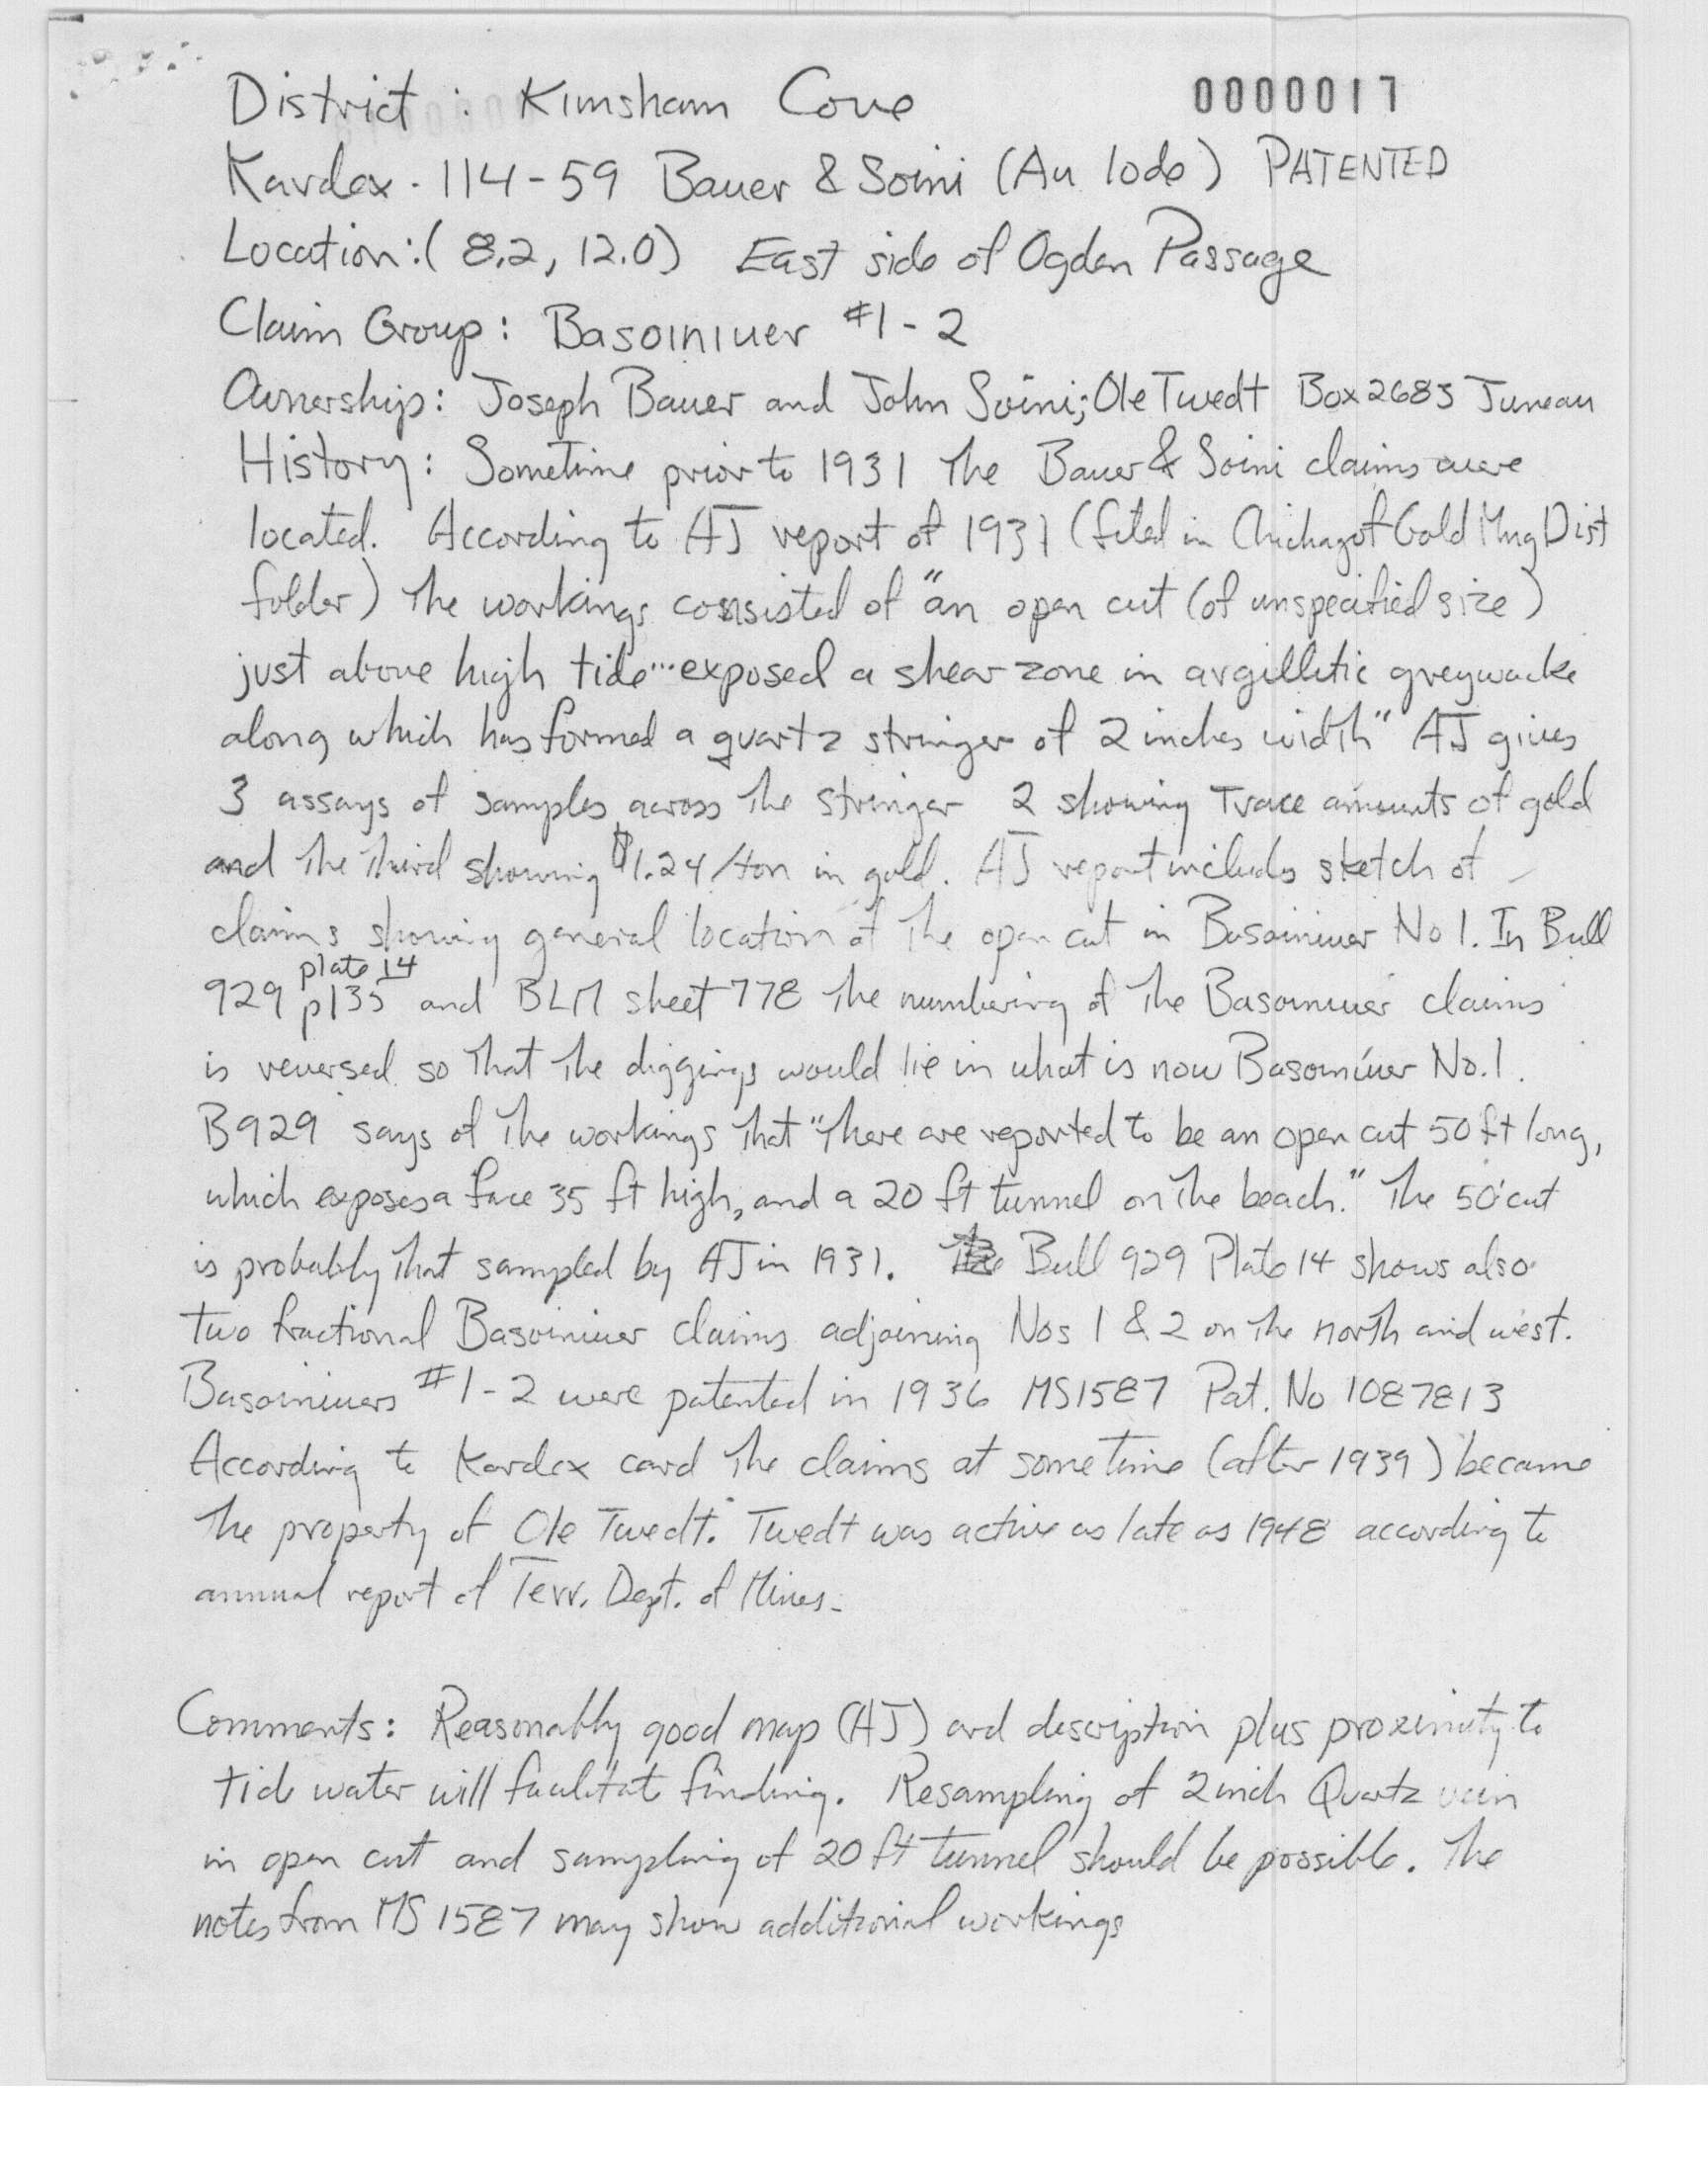 District : Kimsham Cove 0000017
Kardex - 114-59 Bauer & Soini (Au lode) PATENTED
Location: (8.2, 12.0) East side of Ogden Passage
Claim Group: Basoiniuer #1-2
Ownership: Joseph Bauer and John Soini; Ole Twedt Box 2685 Juneau
History: Sometime prior to 1931 the Bauer & Soini claims were
located. According to AJ report of 1931 (filed in Chichagof Gold Mng Dist
folder) the workings consisted of "an open cut (of unspecified size)
just above high tide...exposed a shear zone in argillitic greywacke
along which has formed a quartz stringer of 2 inches width" AJ gives
3 assays of samples across the stringer 2 showing Trace amounts of gold
and the third showing $1.24/ton in gold. AJ report includes sketch of
claims showing general location of the open cut in Basoiniuer No 1. In Bull
plate 14
929 p135 and BLM sheet 778 the numbering of the Basoiniuer claims
is reversed so that the diggings would lie in what is now Basoiniuer No. 1.
B929 says of the workings that "there are reported to be an open cut 50 ft long,
which exposes a face 35 ft high, and a 20 ft tunnel on the beach." The 50' cut
is probably that sampled by AJ in 1931. Bull 929 Plate 14 shows also
two fractional Basoiniuer claims adjoining Nos 1 & 2 on the north and west.
Basoiniuers #1-2 were patented in 1936 MS1587 Pat. No 1087813
According to Kardex card the claims at sometime (after 1939) became
the property of Ole Twedt. Twedt was active as late as 1948 according to
annual report of Terr. Dept. of Mines.
Comments: Reasonably good map (AJ) and description plus proximity to
tide water will facilitate finding. Resampling of 2 inch Quartz vein
in open cut and sampling of 20 ft tunnel should be possible. The
notes from MS 1587 may show additional workings